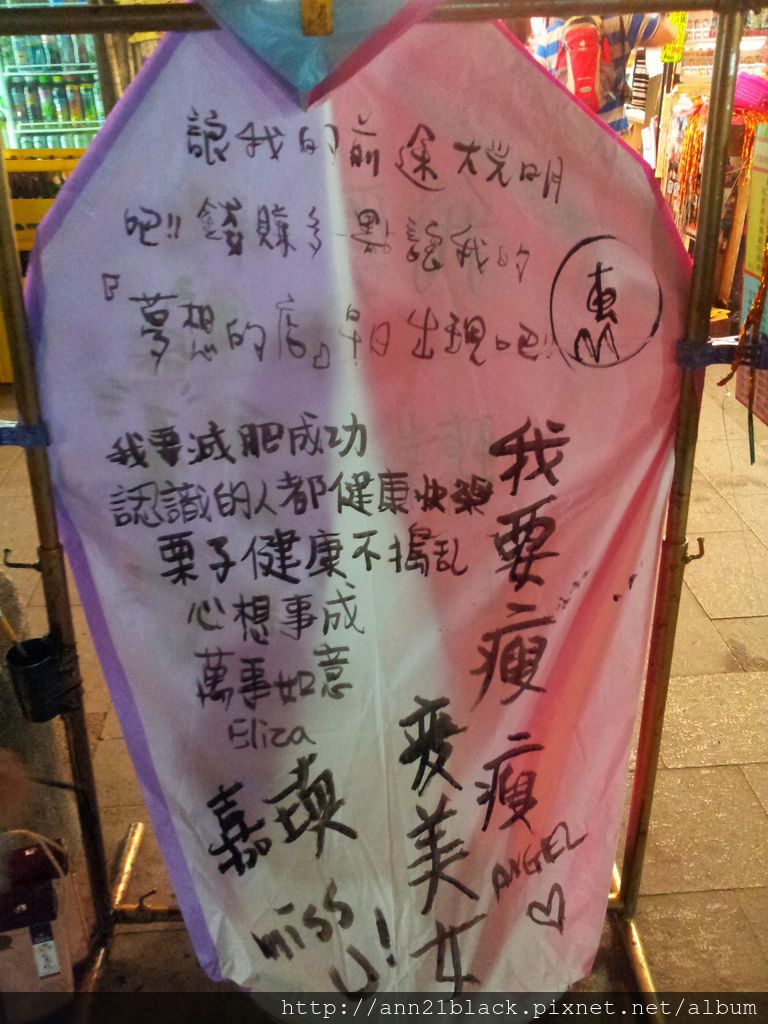 讓我的前途大光明
吧!! 錢賺多點讓我的
『夢想的店』早日出現吧!!
我要減肥成功
認識的人都健康快樂
栗子健康不搗乱
心想事成
萬事如意
Eliza
我要瘦瘦
變美女
ANGEL
嘉瑱
miss
U!
http://ann21black.pixnet.net/album